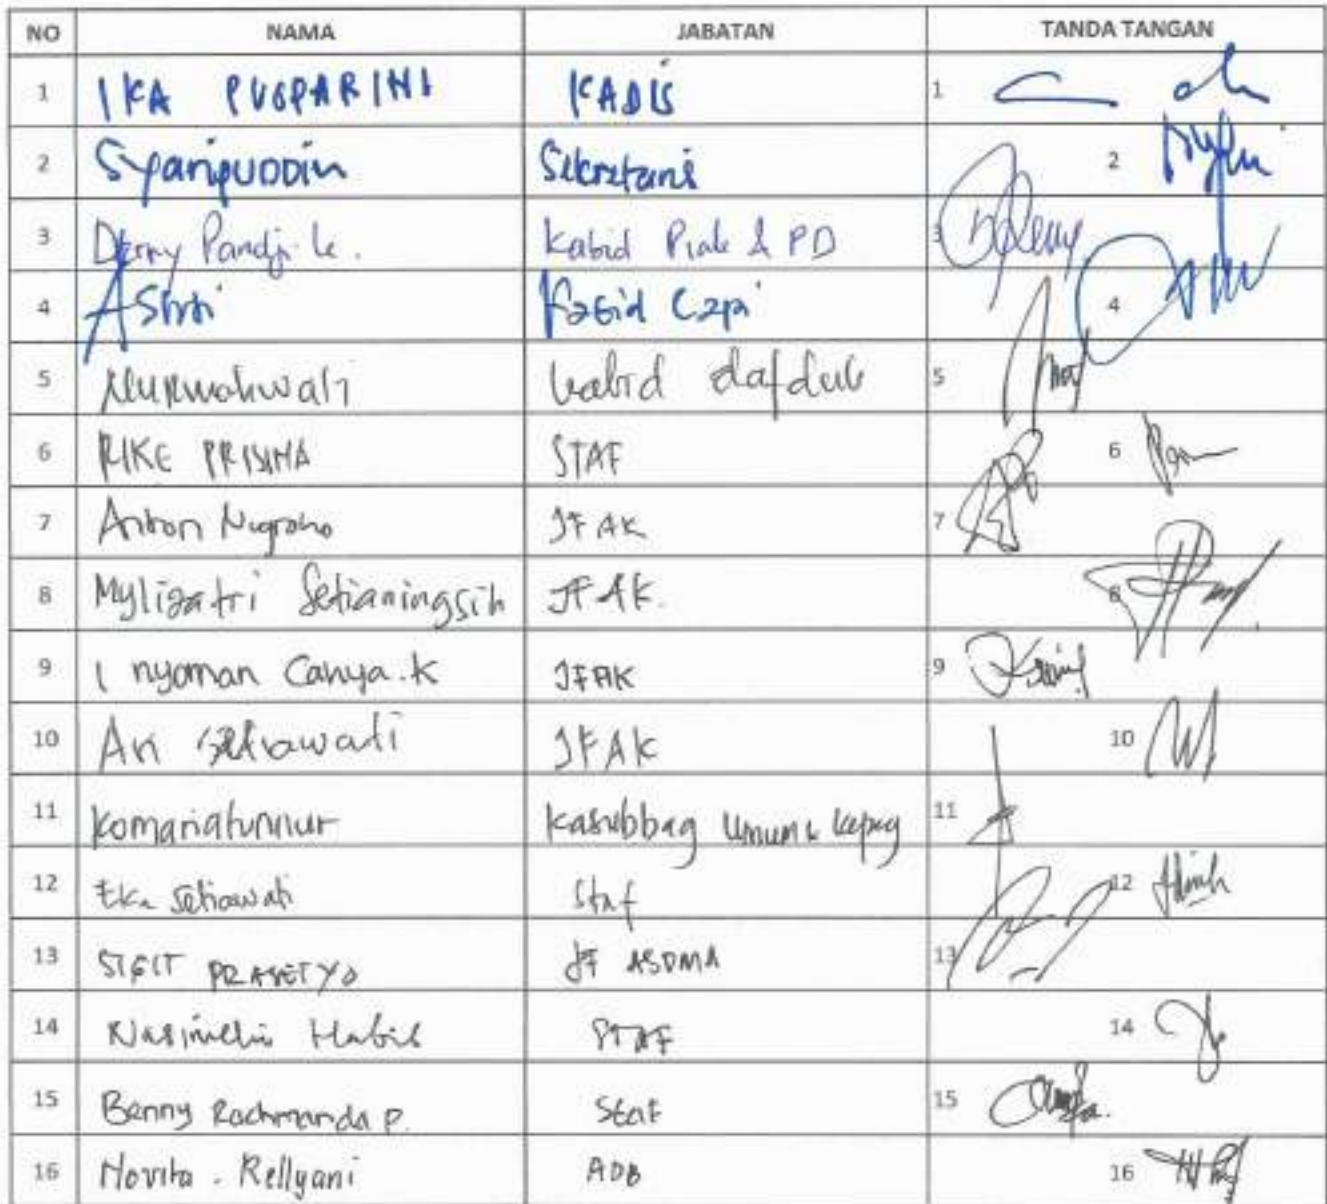 NO NAMA JABATAN TANDA TANGAN
1 IKA PUSPARINI KADIS 1
2 Syaripuddin Sekretaris 2
3 Denny Pandji K. Kabid Piak & PD 3
4 Astuti Kabid Capil 4
5 Nurmahwati Kabid dafduk 5
6 RIKE PRISMA STAF 6
7 Anton Nugroho JFAK 7
8 Mylizatri Setianingsih JFAK. 8
9 I nyoman Cahya.K JFAK 9
10 Ari Setiawati JFAK 10
11 Komariatunnur Kasubbag Umum & Kepeg 11
12 Eka Setiawati Staf 12
13 SIGIT PRASETYO JF ASDMA 13
14 Habib STAF 14
15 Benny Rachmanda P. Staf 15
16 Novita . Rellyani ADB 16